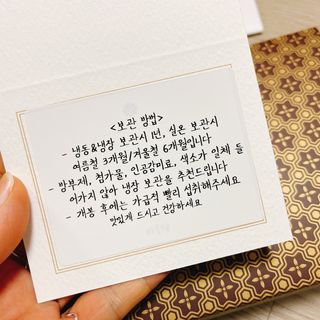 <보관 방법>
- 냉동&냉장 보관시 1년, 실온 보관시
여름철 3개월/겨울철 6개월입니다
- 방부제, 첨가물, 인공감미료, 색소가 일체 들
어가지 않아 냉장 보관을 추천드립니다
- 개봉 후에는 가급적 빨리 섭취해주세요
맛있게 드시고 건강하세요